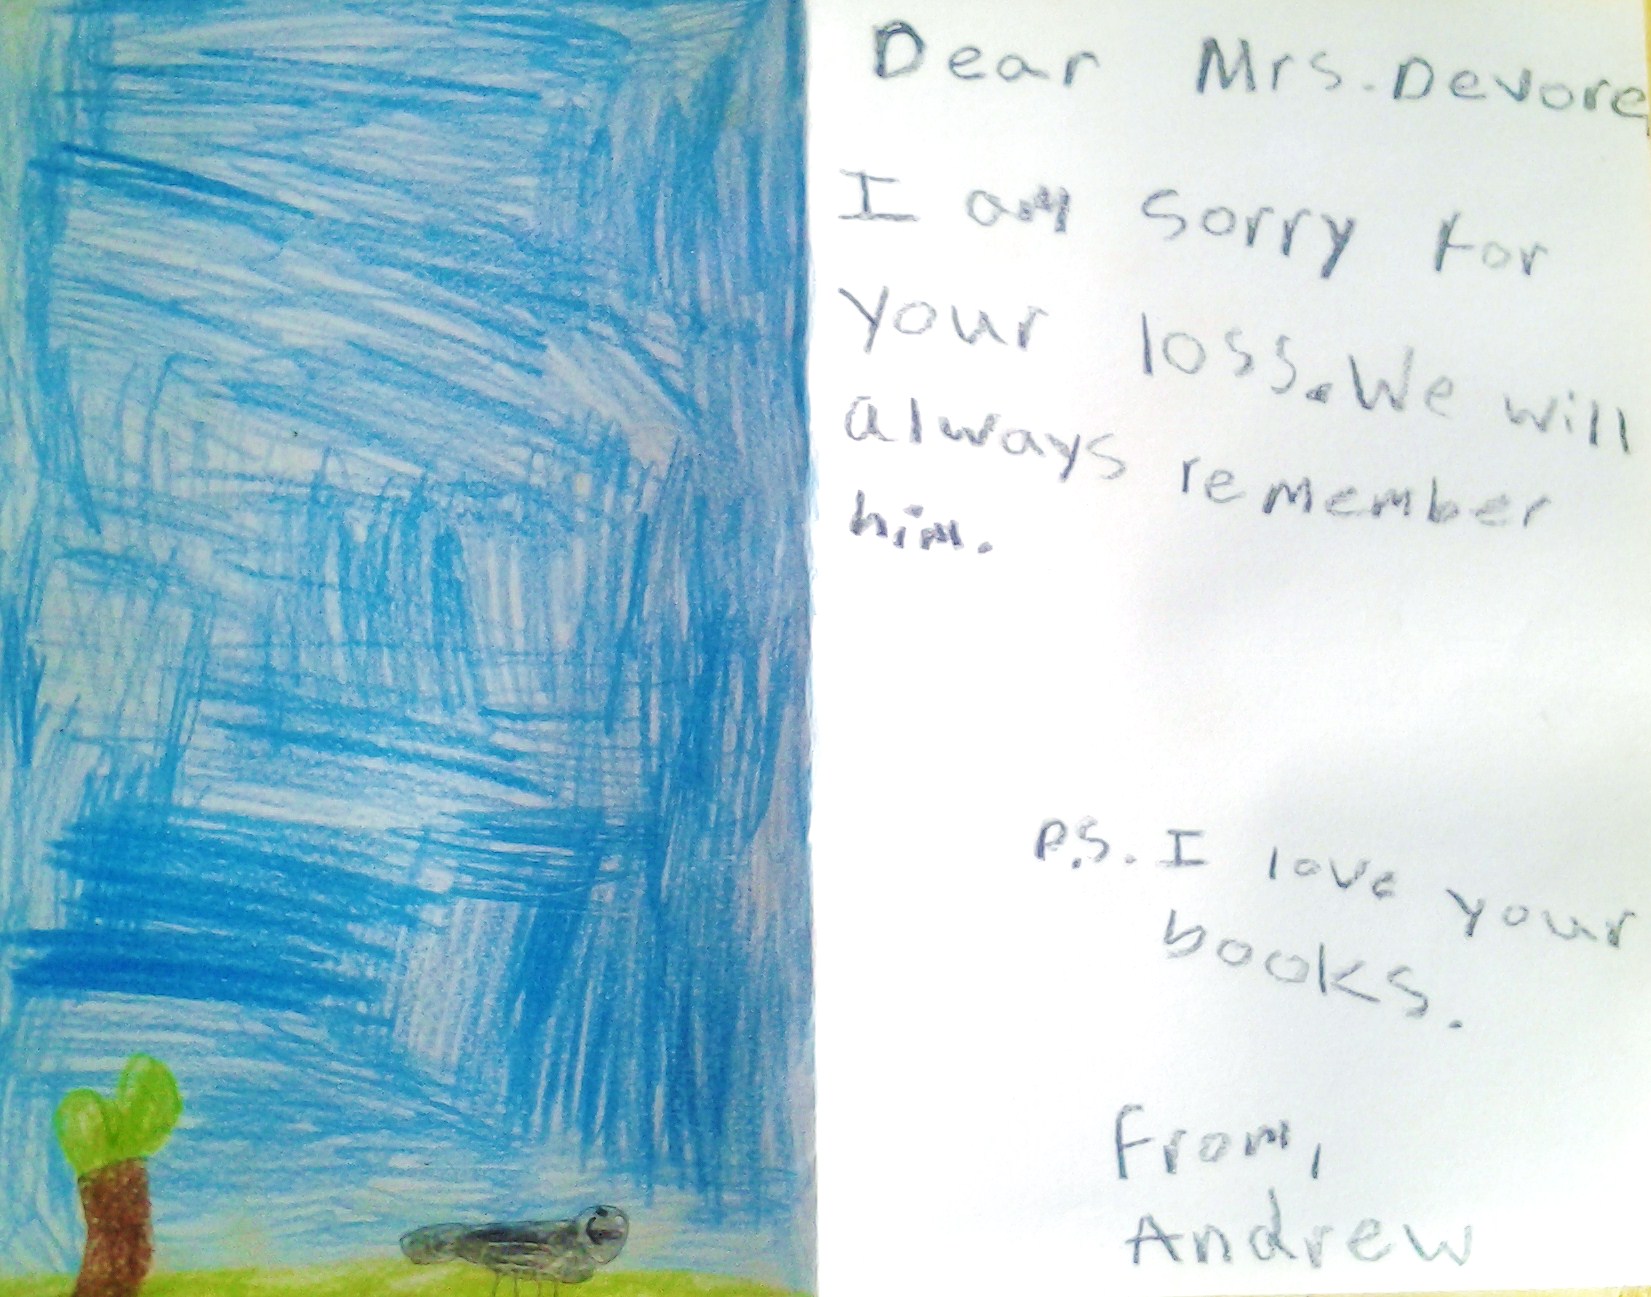 Dear Mrs. Devore
I am sorry for
your loss. We will
always remember
him.
P.S. I love your
books.
From,
Andrew